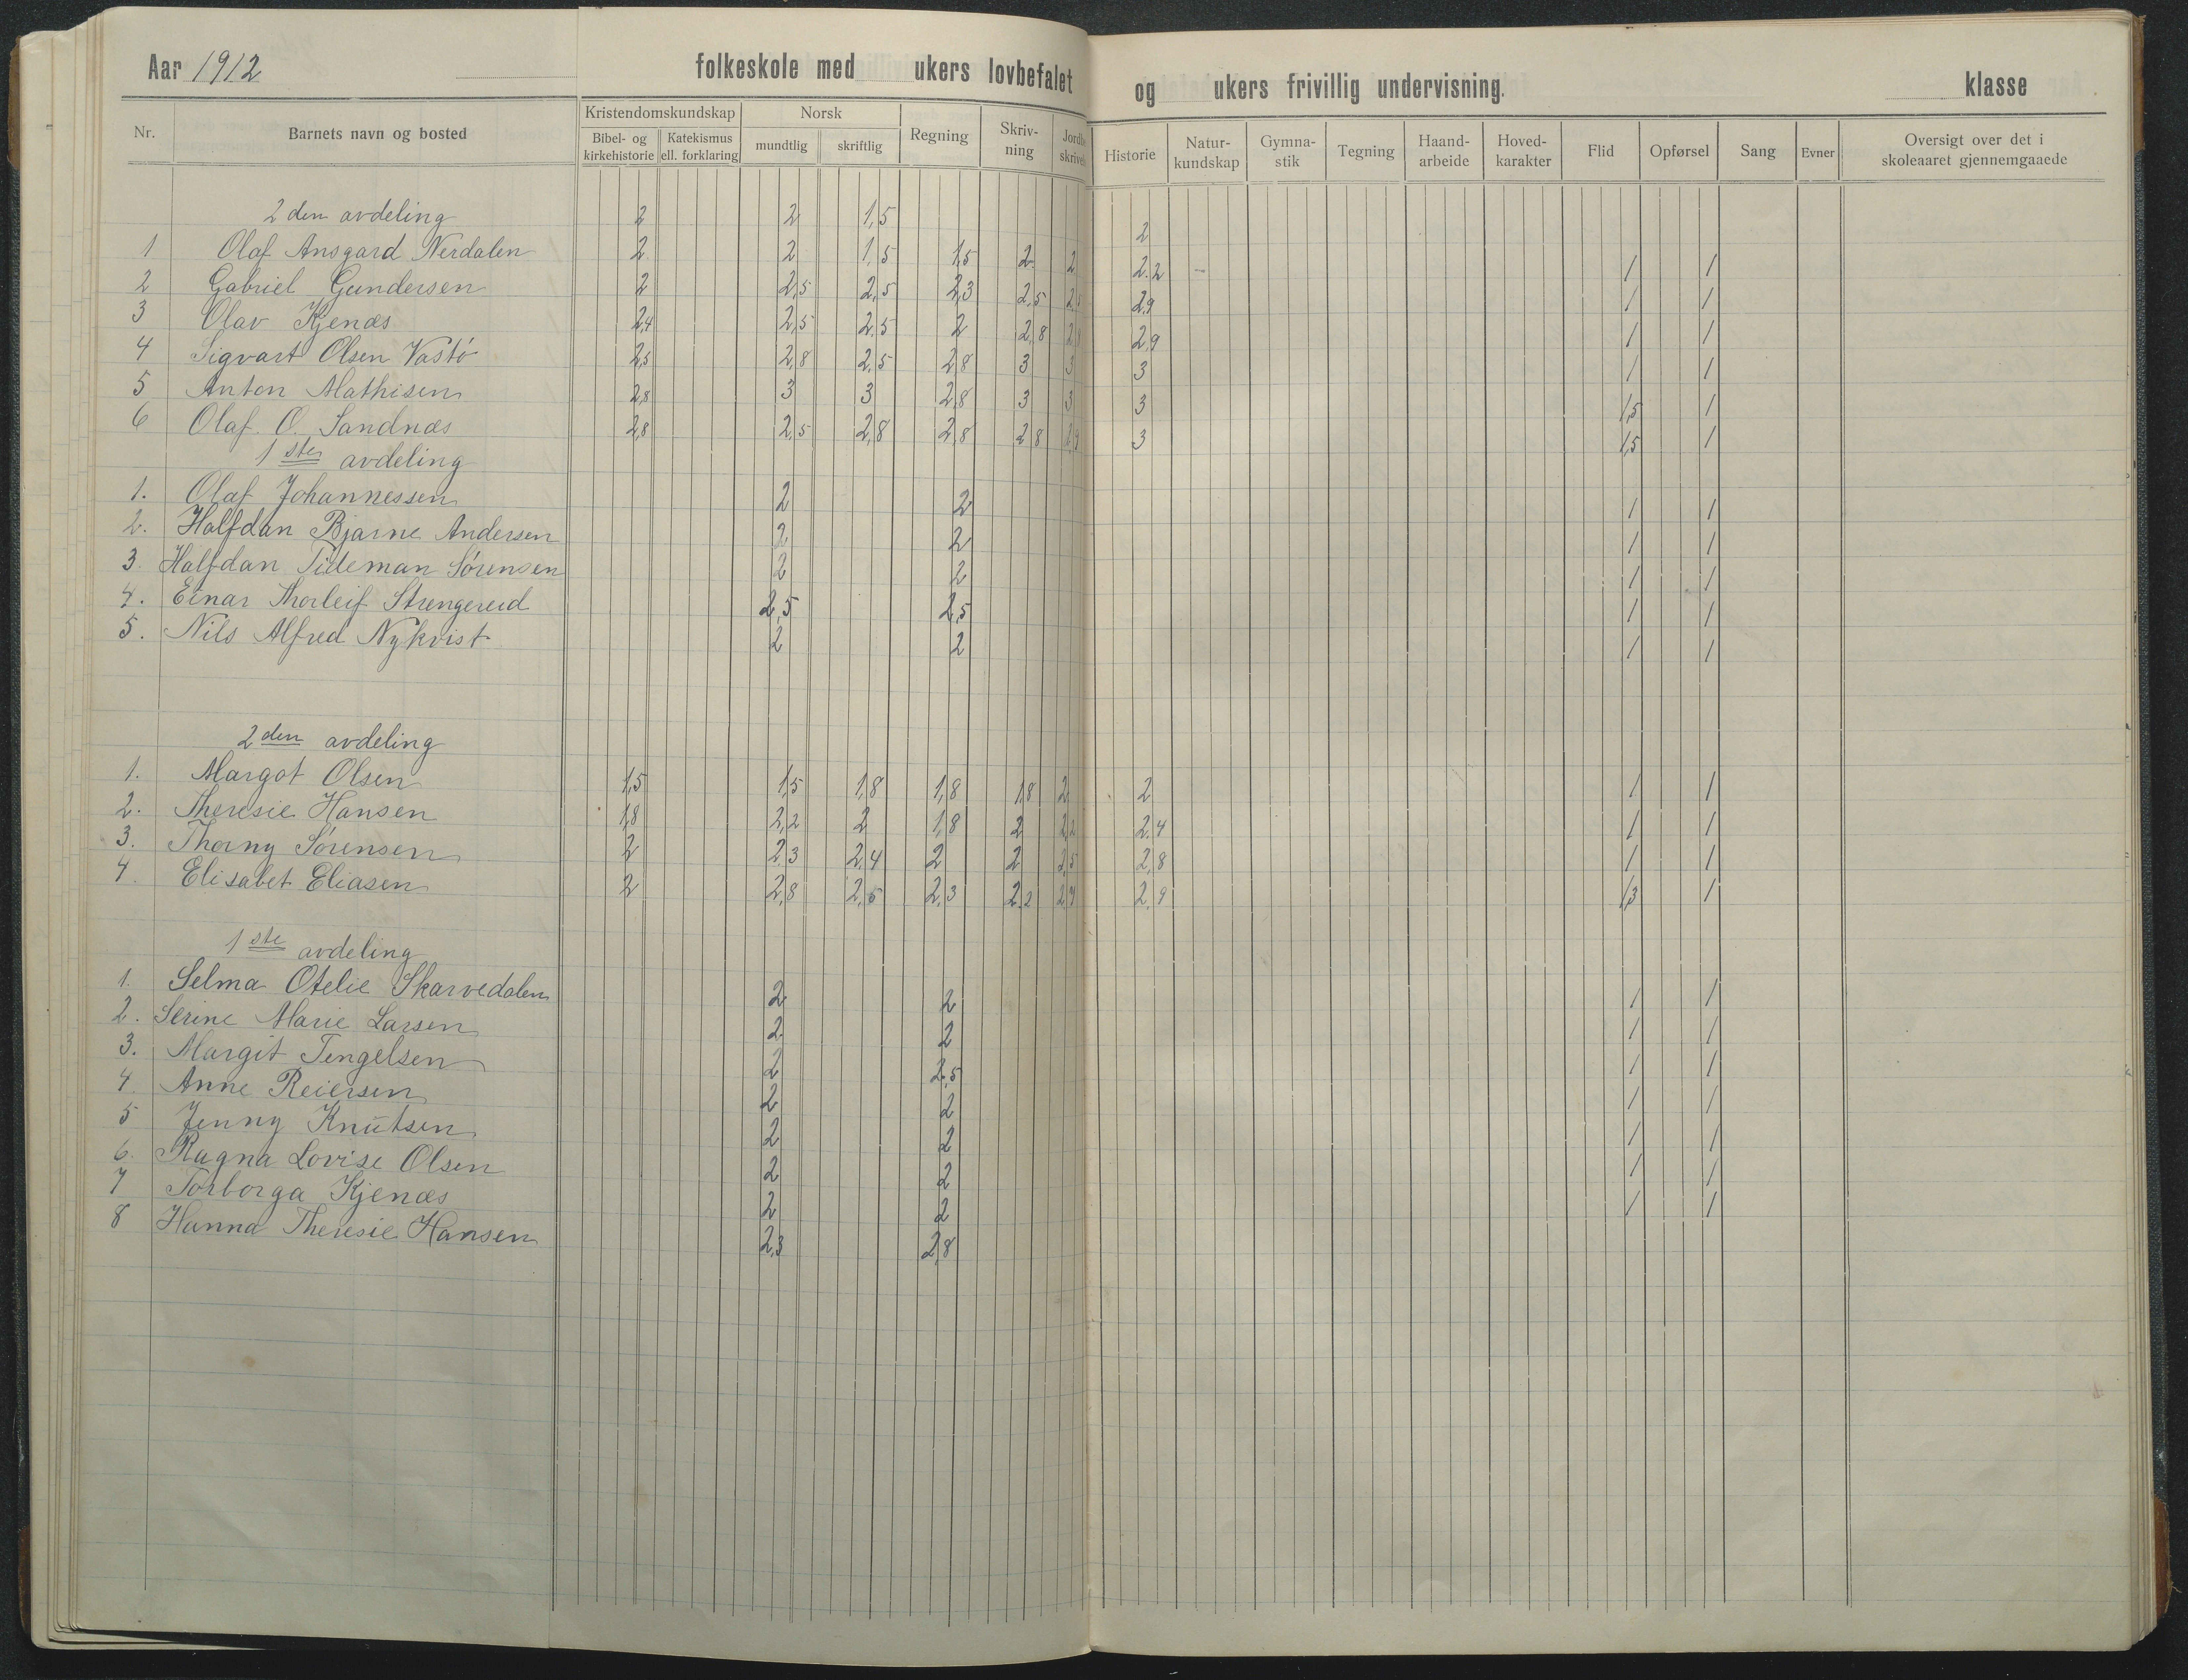 Aar 1912 folkeskole med ukers lovbefalet og ukers frivillig undervisning. klasse
Nr. Barnets navn og bosted Kristendomskundskap Bibel- og kirkehistorie Katekismus ell. forklaring Norsk mundtlig skriftlig Regning Skriv-ning Historie Natur-kundskap Gymna-stik Tegning Haand-arbeide Hoved-karakter Flid Opførsel Sang Evner Oversigt over det i skoleaaret gjennemgaaede
2den avdeling 2 2 1,5 2
1 Olaf Ansgard Nerdalen 2 2 1,5 1,5 2 2 2.2 - 1 1
2 Gabriel Gundersen 2 2,5 2,5 2,3 2,5 2,9 1 1
3 Olav Kjenæs 2,4 2,5 2,5 2 2,8 2,9 1 1
4 Sigvart Olsen Vastø 2,5 2,8 2,5 2,8 3 3 3 1 1
5 Anton Mathisen 2,8 3 3 2,8 3 3 3 1,5 1
6 Olaf O. Sandnæs 2,8 2,5 2,8 2,8 2,8 3 1,5 1
1ste avdeling
1. Olaf Johannessen 2 2 1 1
2. Halfdan Bjarne Andersen 2 2 1 1
3. Halfdan Tideman Sørensen 2 2 1 1
4. Einar Thorleif Strengereid 2,5 2,5 1 1
5. Nils Alfred Nykvist 2 2 1 1
2den avdeling
1. Margot Olsen 1,5 1,5 1,8 1,8 1,8 2 2 1 1
2. Theresie Hansen 1,8 2,2 2 1,8 2 2,2 2.4 1 1
3. Thorny Sørensen 2 2,3 2,4 2 2 2,5 2,8 1 1
4. Elisabet Eliasen 2 2,8 2,5 2,3 2,2 2,9 1,3 1
1ste avdeling
1. Selma Otelie Skarvedalen 2 2 1 1
2. Serine Marie Larsen 2 2 1 1
3. Margit Tengelsen 2 2,5 1 1
4. Anne Reiersen 2 2 1 1
5 Jenny Knutsen 2 2 1 1
6. Ragna Lovise Olsen 2 2 1 1
7 Torborga Kjenæs 2 2 1 1
8 Hanna Theresie Hansen 2,3 2,8